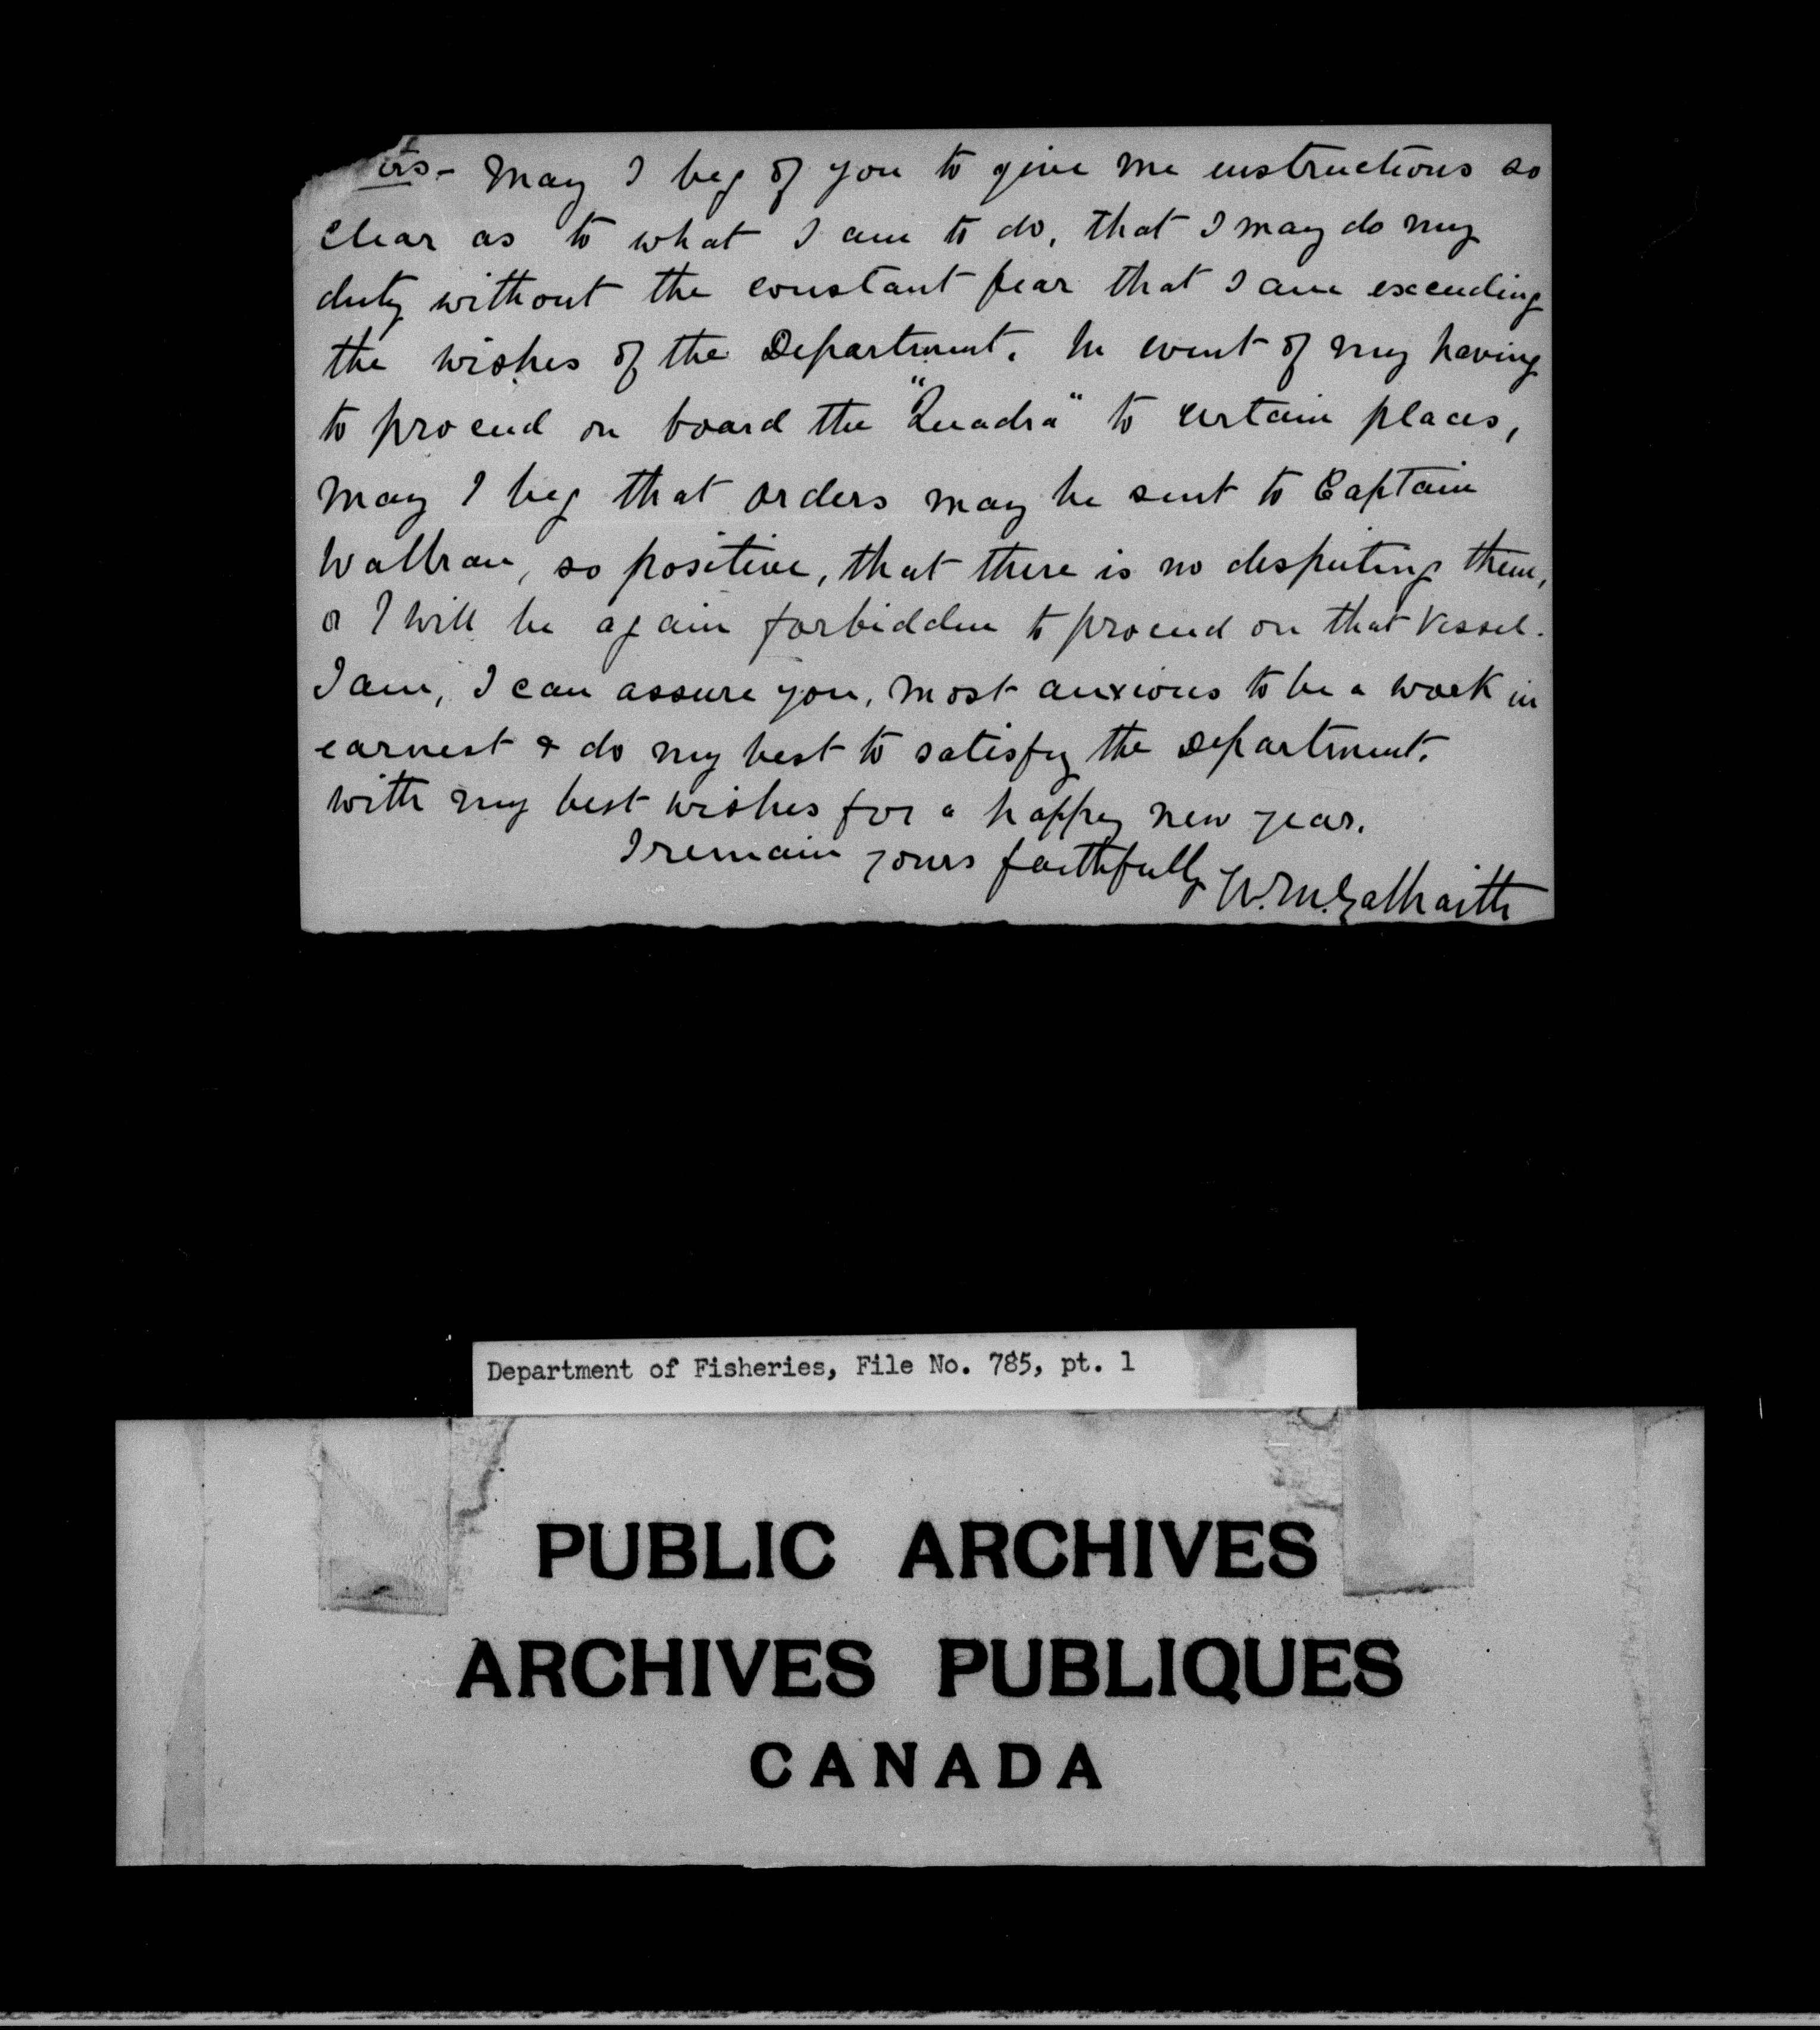 May I beg of you to give me instructions so
clear as to what I am to do, that I may do my
duty without the constant fear that I am exceeding
the wishes of the Department. In event of my having
to proceed on board the "Quadra" to certain places,
may I beg that orders may be sent to Captain
Walbran, so positive, that there is no disputing them,
or I will be again forbidden to proceed on that vessel.
I am, I can assure you, most anxious to be a work in
earnest & do my best to satisfy the Department.
With my best wishes for a happy new year.
I remain yours faithfully W.M. Galbraith
Department of Fisheries, File No. 785, pt. 1
PUBLIC ARCHIVES
ARCHIVES PUBLIQUES
CANADA